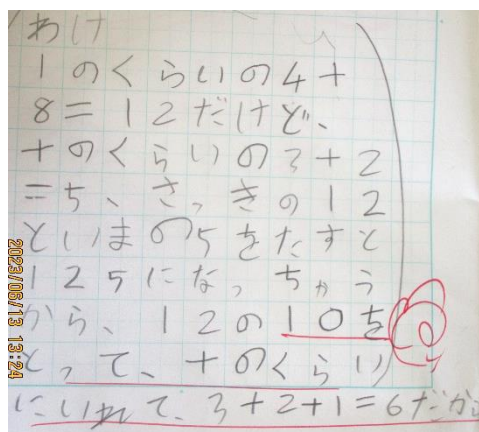 わけ
1のくらいの4+
8=12だけど、
十のくらいの3+2
=5、さっきの12
といまの5をたすと
125になっちゃう
から、12の10を
とって、十のくらい
にいれて、3+2+1=6だか
2023/06/13 13:24